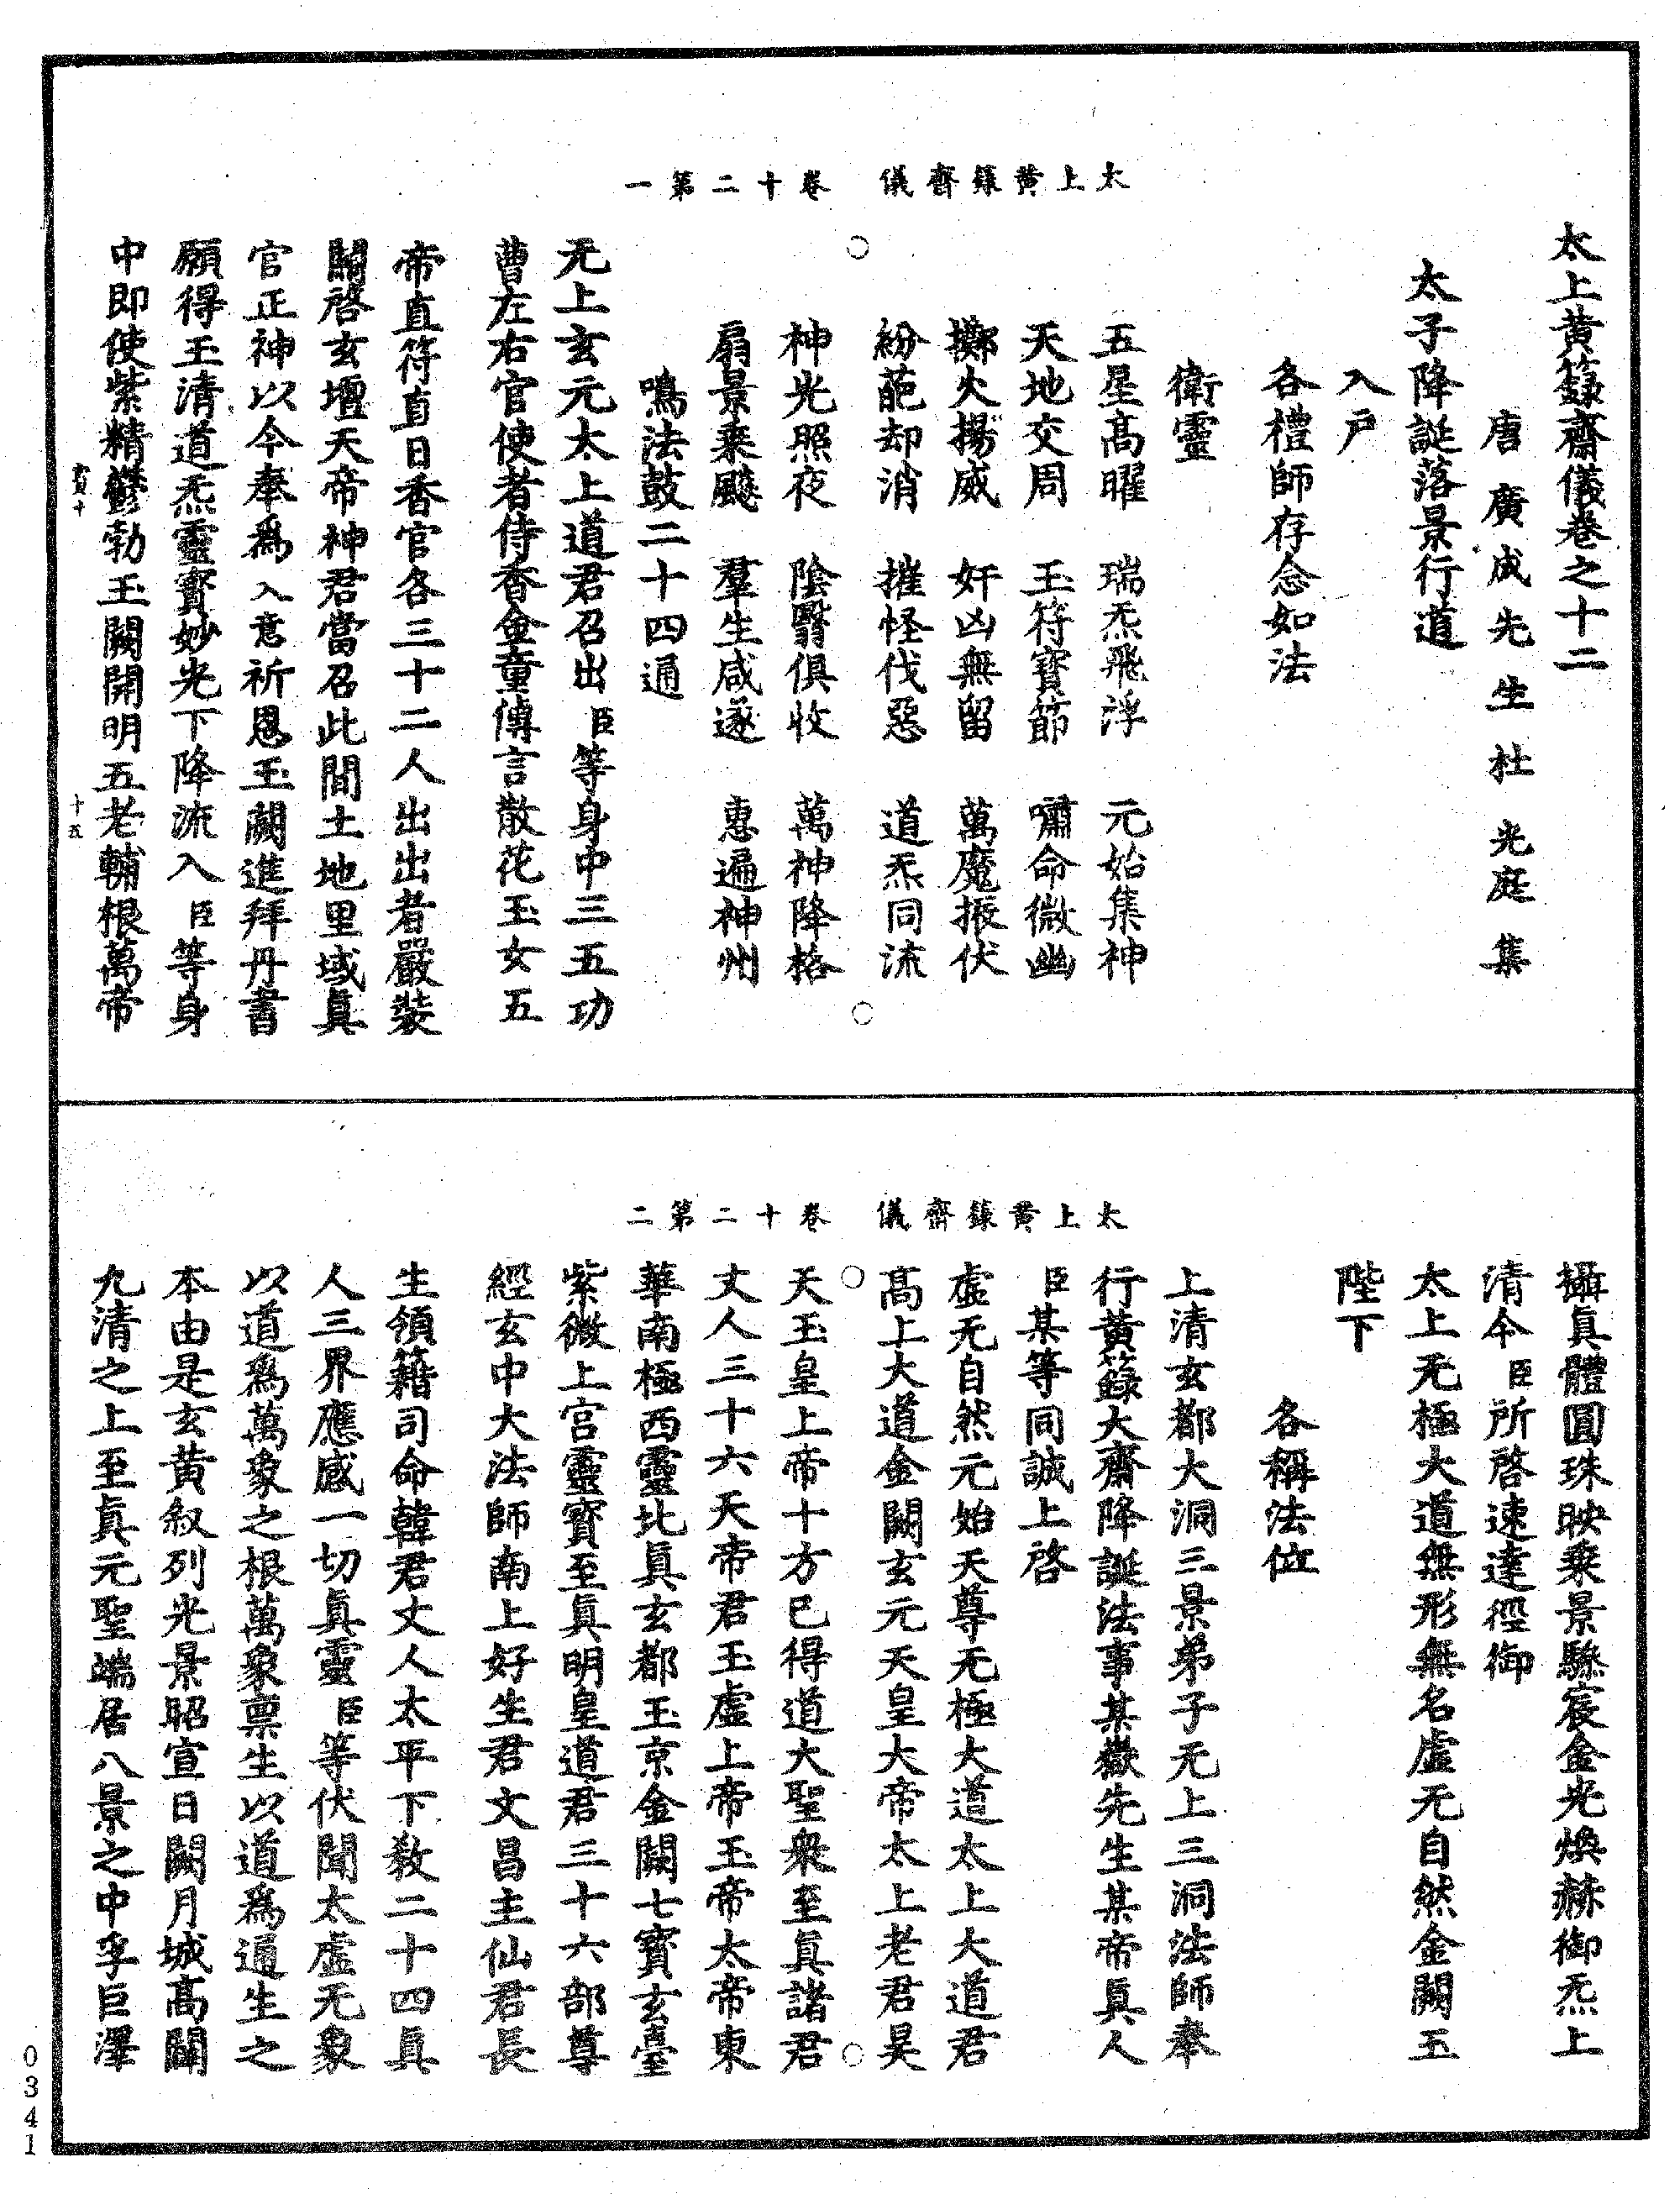 太上黃籙齋儀　卷十二第一
太上黃籙齋儀卷之十二
唐廣成先生杜光庭集
太子降誕落景行道
入戶
各禮師存念如法
衛靈
五星高曜　瑞炁飛浮　元始集神
天地交周　玉符寶節　嘯命微幽
擲火揚威　奸凶無留　萬魔振伏
紛葩却消　摧怪伐惡　道炁同流
神光照夜　陰翳俱收　萬神降格
扇景乘飈　羣生咸遂　惠遍神州
鳴法鼓二十四通
无上玄元太上道君召出臣等身中三五功
曹左右官使者侍香金童傳言散花玉女五
帝直符直日香官各三十二人出出者嚴裝
關啓玄壇天帝神君當召此間土地里域真
官正神以今奉爲入意祈恩玉闕進拜丹書
願得玉清道炁靈寶妙光下降流入臣等身
中即使紫精鬱勃玉闕開明五老輔根萬帝
十五
太上黃籙齋儀　卷十二第二
攝真體圓珠映乘景驂宸金光煥赫御炁上
清今臣所啓速達徑御
太上无極大道無形無名虛无自然金闕玉
陛下
各稱法位
上清玄都大洞三景弟子无上三洞法師奉
行黃籙大齋降誕法事某嶽先生某帝真人
臣某等同誠上啓
虛无自然元始天尊无極大道太上大道君
高上大道金闕玄元天皇大帝太上老君昊
天玉皇上帝十方已得道大聖衆至真諸君
丈人三十六天帝君玉虛上帝玉帝太帝東
華南極西靈北真玄都玉京金闕七寶玄臺
紫微上宮靈寶至真明皇道君三十六部尊
經玄中大法師南上好生君文昌主仙君長
生領籍司命韓君丈人太平下教二十四真
人三界應感一切真靈臣等伏聞太虛无象
以道爲萬象之根萬象稟生以道爲通生之
本由是玄黃叙列光景昭宣日闕月城高闢
九清之上至真元聖端居八景之中孚巨澤
0341